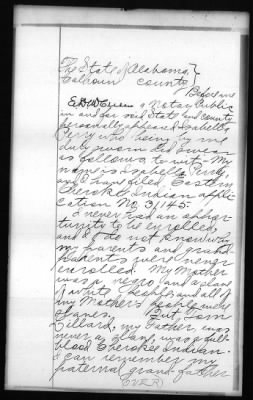 The State of Alabama }
Calhoun County }
Before me
a Notary Public
in and for said State and County
personally appeared Isabella
Perry who being by me
duly sworn deposes
as follows to wit:- My
name is Isabella Perry,
and I have filed Eastern
Cherokee Indian appli-
cation No 31145.
I never had an oppor-
tunity to be enrolled,
and I do not know why
my parents and grand
parents were never
enrolled. My Mother
was a negro and a slave
and all of
my Mother's people were
slaves. But Tom
Dillard, my Father, was
never a slave, was a full
blood Cherokee Indian.
I can remember my
paternal grand father
(OVER)